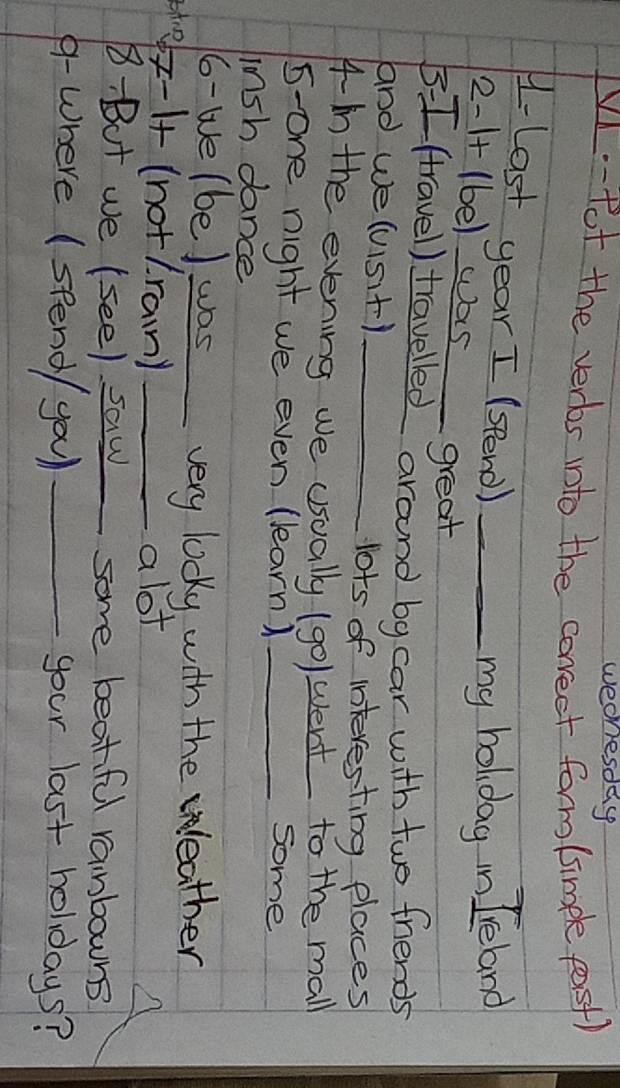 wednesday
VI.- Put the verbs into the correct form (simple past)
1- Last year I (spend) ______ my holiday in Ireland
2- It (be) was great
3- I (travel) travelled around by car with two friends
and we (visit) ______ lots of interesting places
4- In the evening we usually (go) went to the mall
5- one night we even (learn) ______ some
irish dance
6- we (be) was very lucky with the weather
7- It (not/rain) ______ a lot
8- But we (see) saw some beatiful rainbowns
9- where (spend/you) ______ your last holidays?